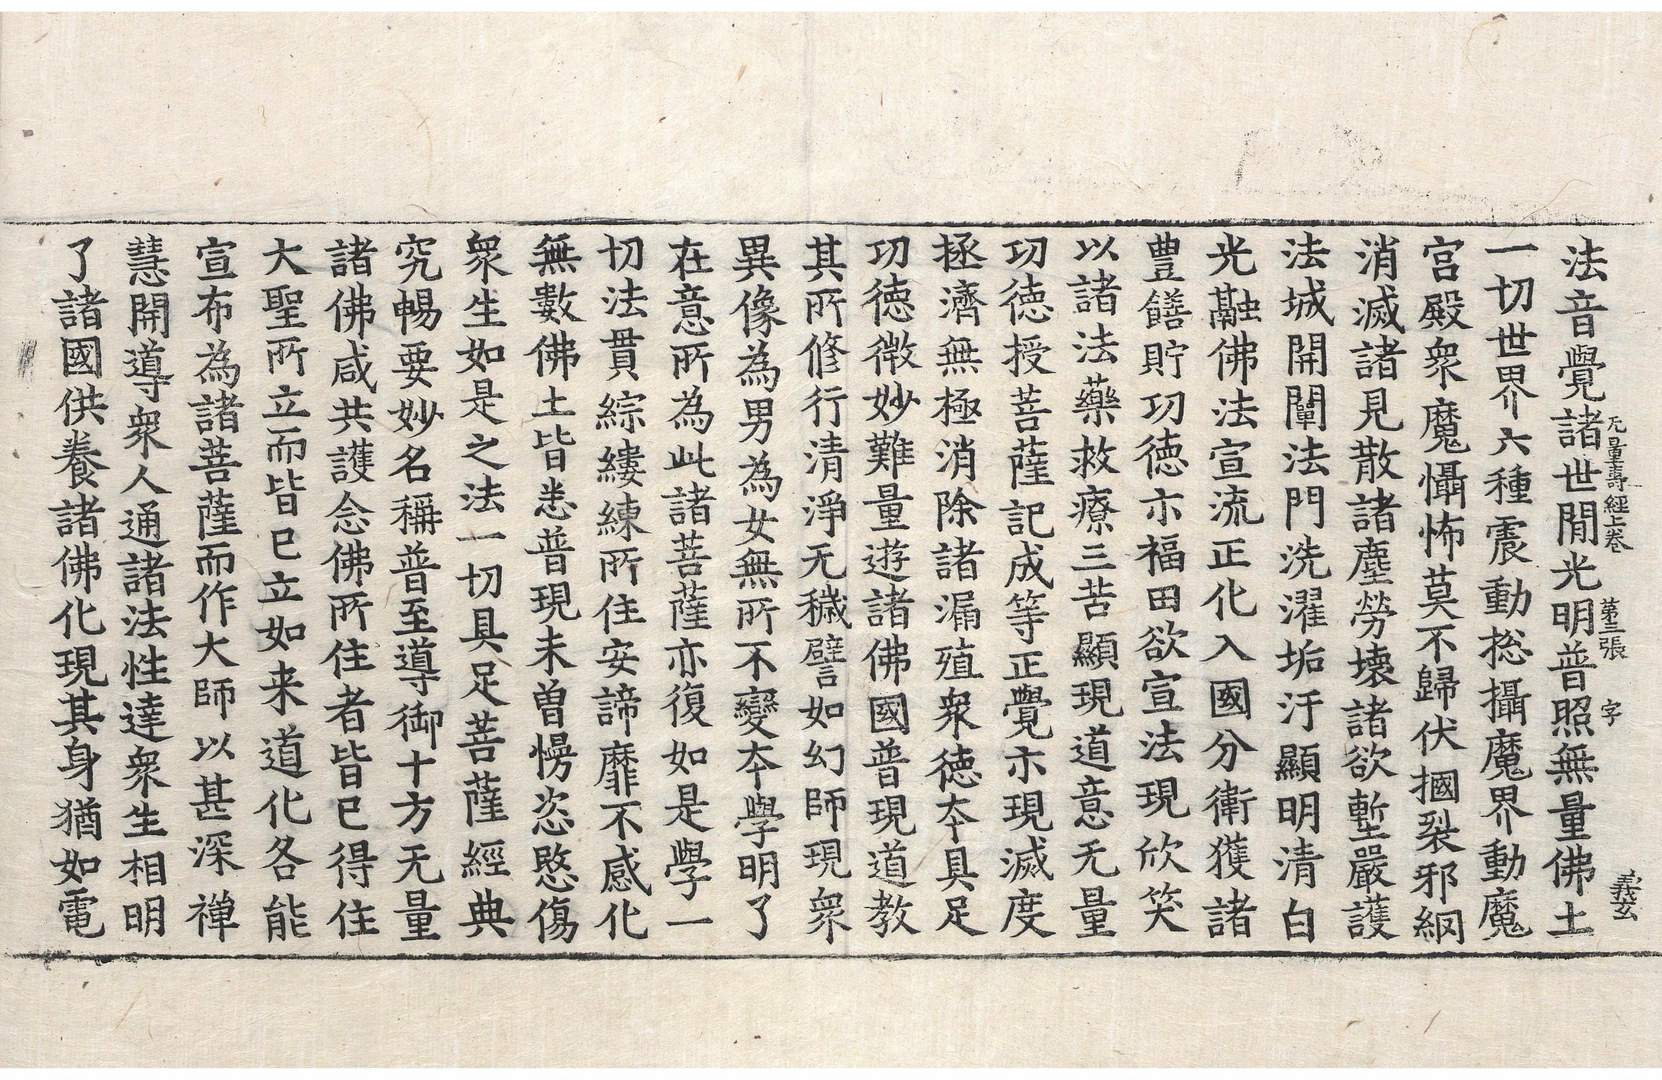 法音覺諸世間光明普照無量佛土
无量壽經上卷 第三張 字 義玄
一切世界六種震動揔攝魔界動魔
宮殿衆魔懾怖莫不歸伏摑裂邪網
消滅諸見散諸塵勞壞諸欲塹嚴護
法城開闡法門洗濯垢汙顯明清白
光融佛法宣流正化入國分衛獲諸
豊饍貯功徳示福田欲宣法現欣笑
以諸法藥救療三苦顯現道意无量
功徳授菩薩記成等正覺示現滅度
拯濟無極消除諸漏殖衆徳夲具足
功徳微妙難量遊諸佛國普現道教
其所修行清淨无穢譬如幻師現衆
異像為男為女無所不變夲學明了
在意所為此諸菩薩亦復如是學一
切法貫綜縷練所住安諦靡不感化
無數佛土皆悉普現未曽慢恣愍傷
衆生如是之法一切具足菩薩經典
究暢要妙名稱普至導御十方无量
諸佛咸共護念佛所住者皆已得住
大聖所立而皆已立如来道化各能
宣布為諸菩薩而作大師以甚深禪
慧開導衆人通諸法性達衆生相明
了諸國供養諸佛化現其身猶如電